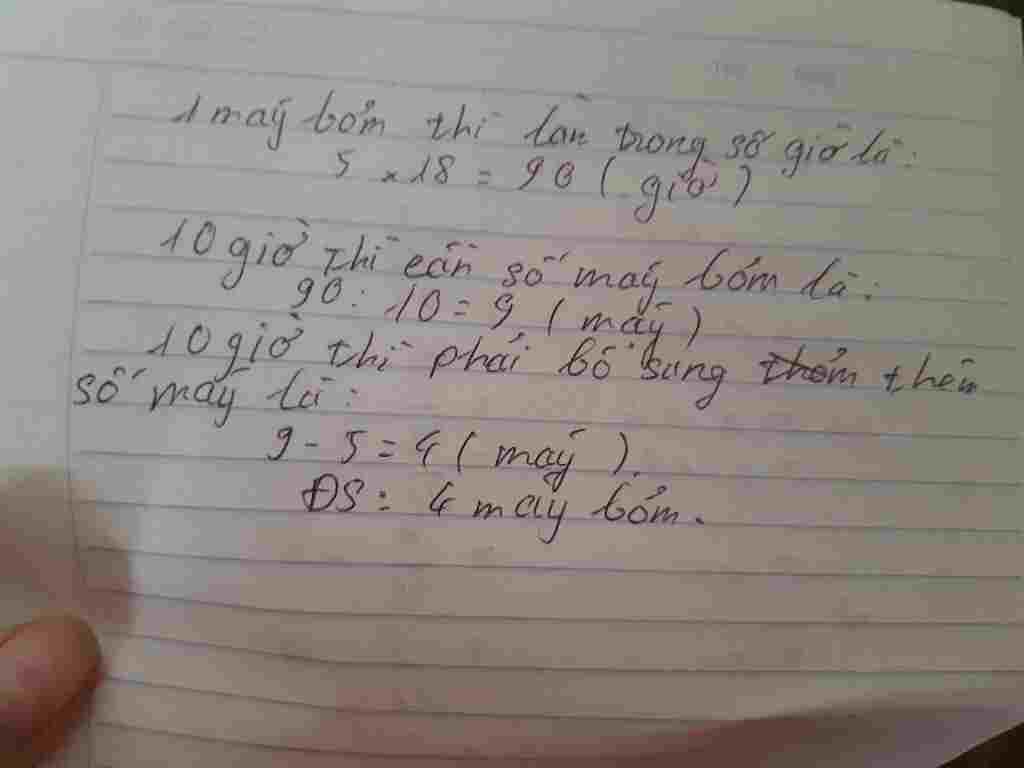 1 máy bơm thì làn trong số giờ là:
5 x 18 = 90 (giờ)
10 giờ thì cần số máy bơm là:
90: 10 = 9 (máy)
10 giờ thì phải bổ sung thêm thêm
số máy là:
9 - 5 = 4 (máy).
ĐS: 4 máy bơm.